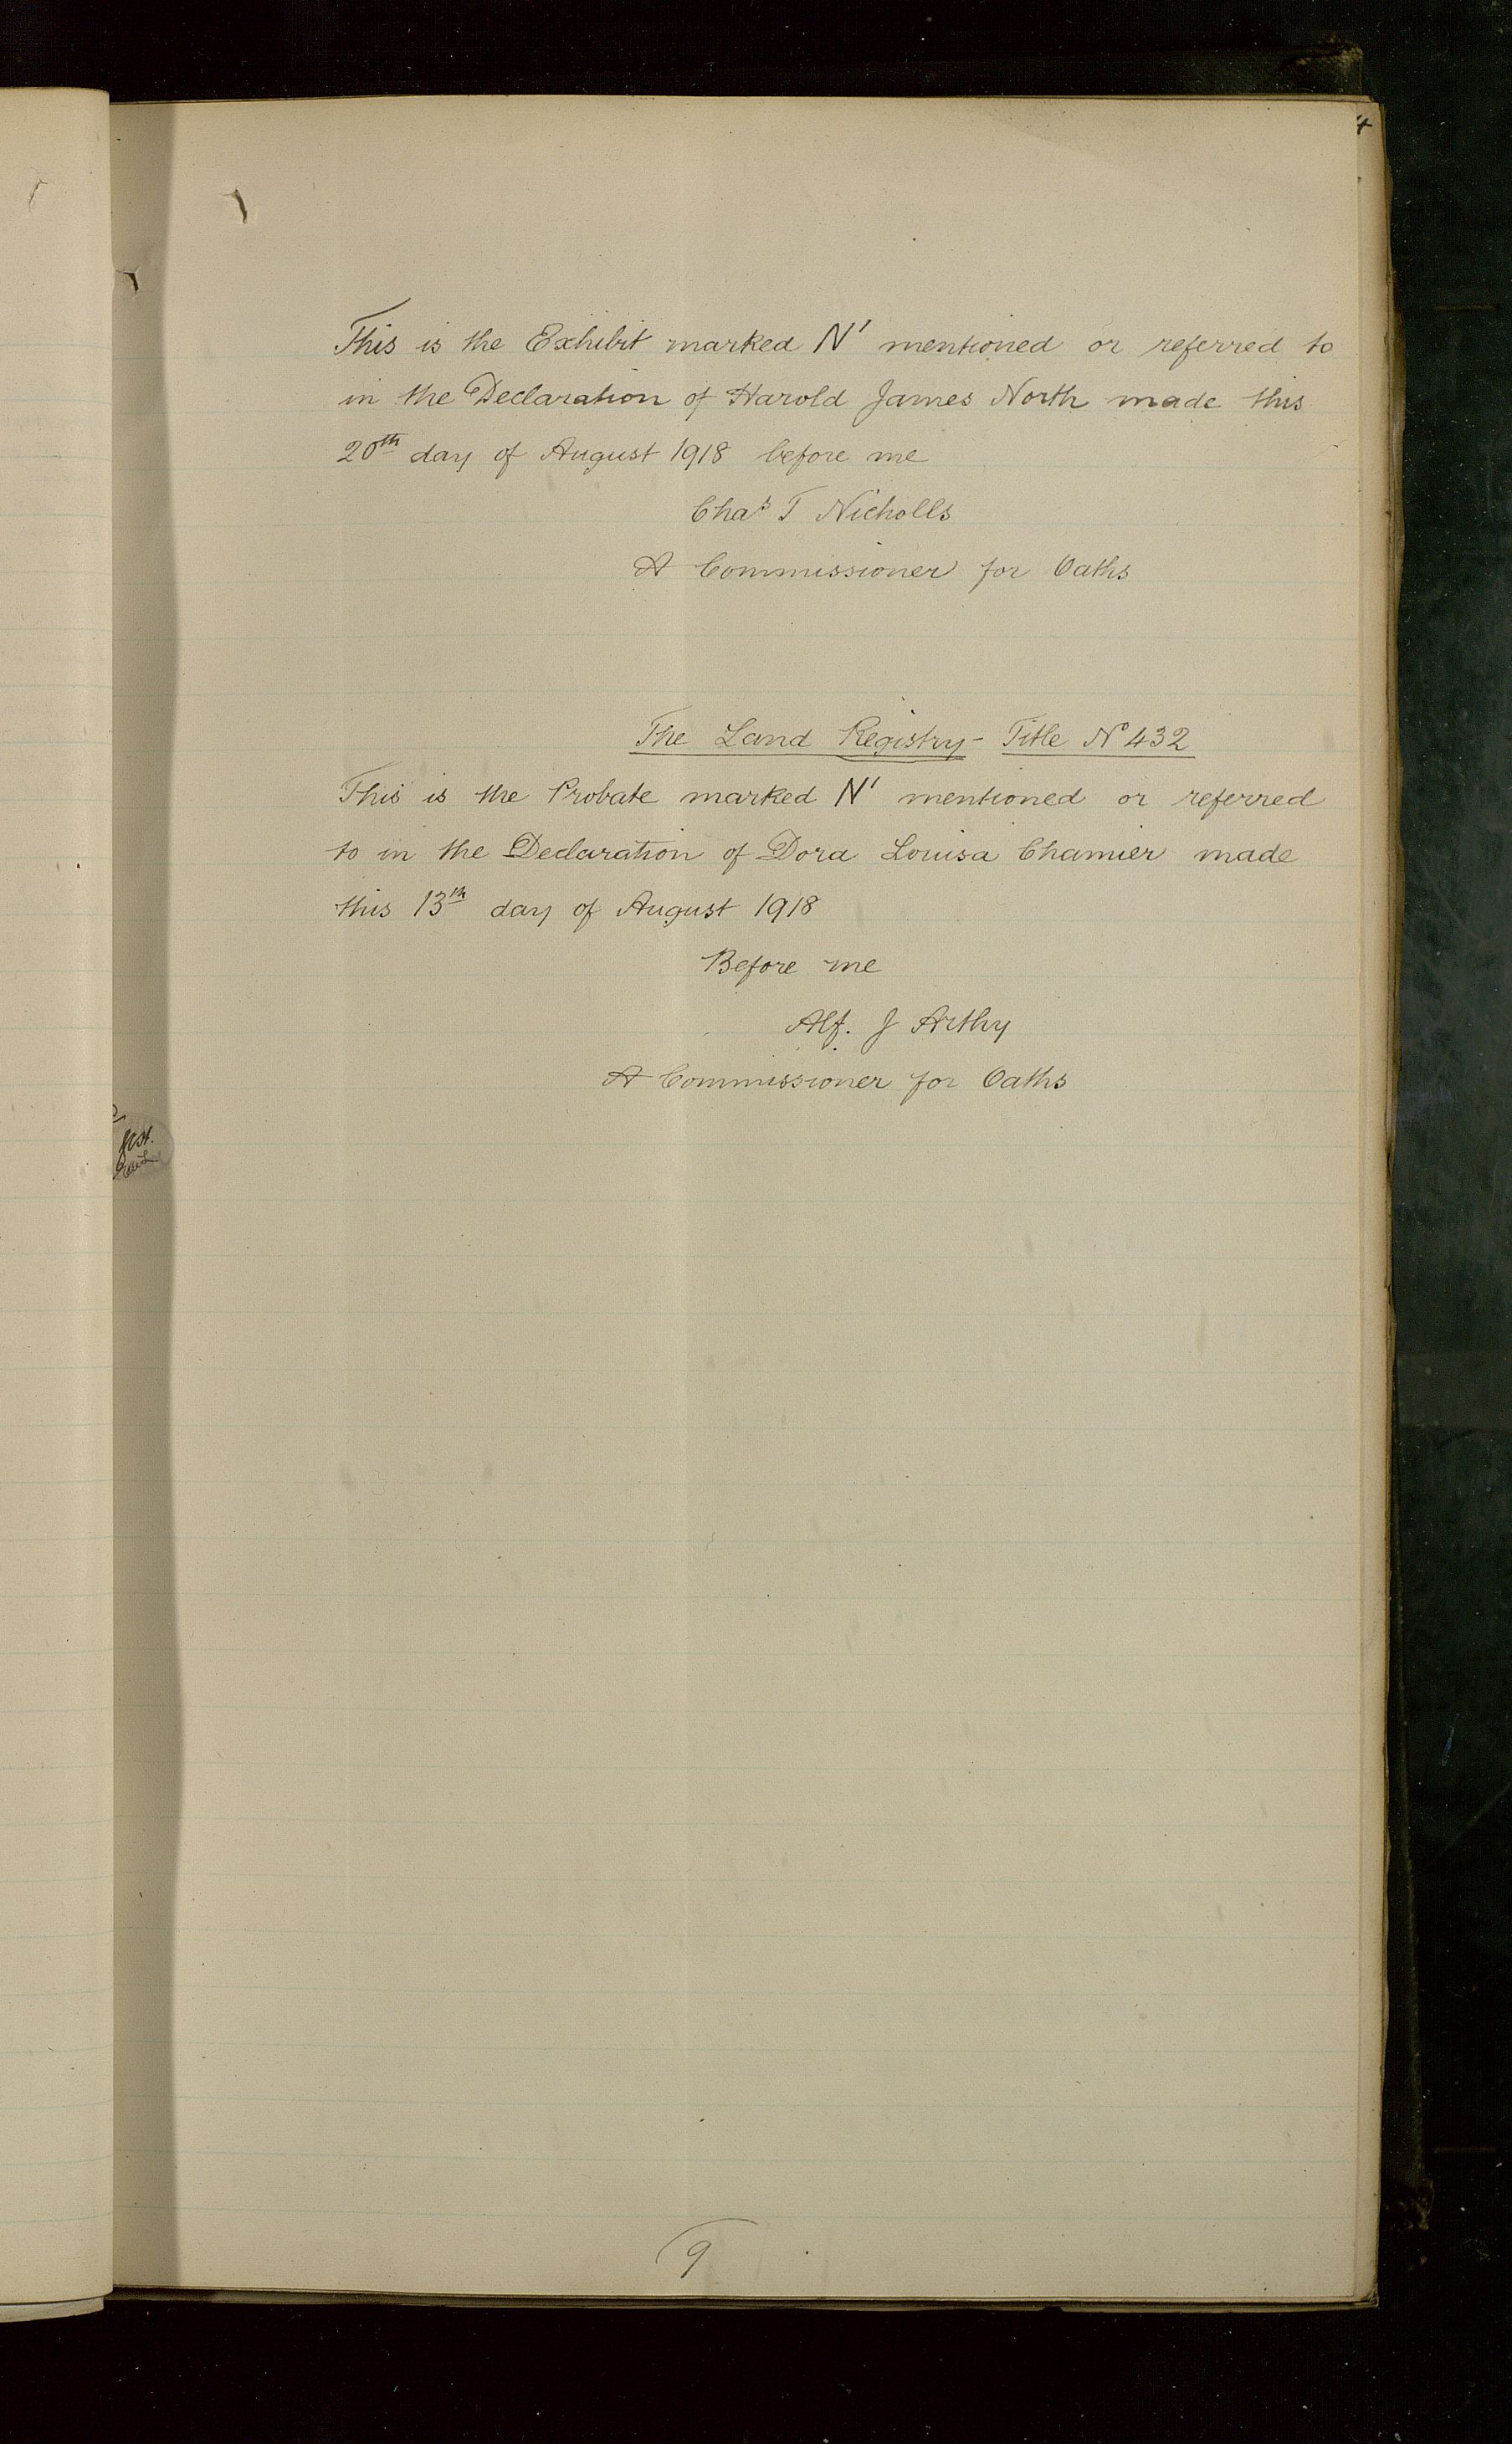 4
This is the Exhibit marked N' mentioned or referred to
in the Declaration of Harold James North made this
20th day of August 1918 before me
Chas T Nicholls
A Commissioner for Oaths
The Land Registry - Title No 432
This is the Probate marked N' mentioned or referred
to in the Declaration of Dora Louisa Chamier made
this 13th day of August 1918
Before me
Alf. J Arthy
A Commissioner for Oaths
9